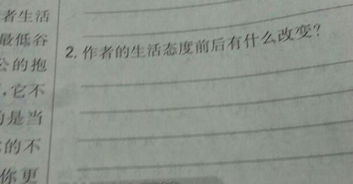 者生活
最低谷
公的抱
,它不
的是当
的不
你更
2. 作者的生活态度前后有什么改变?